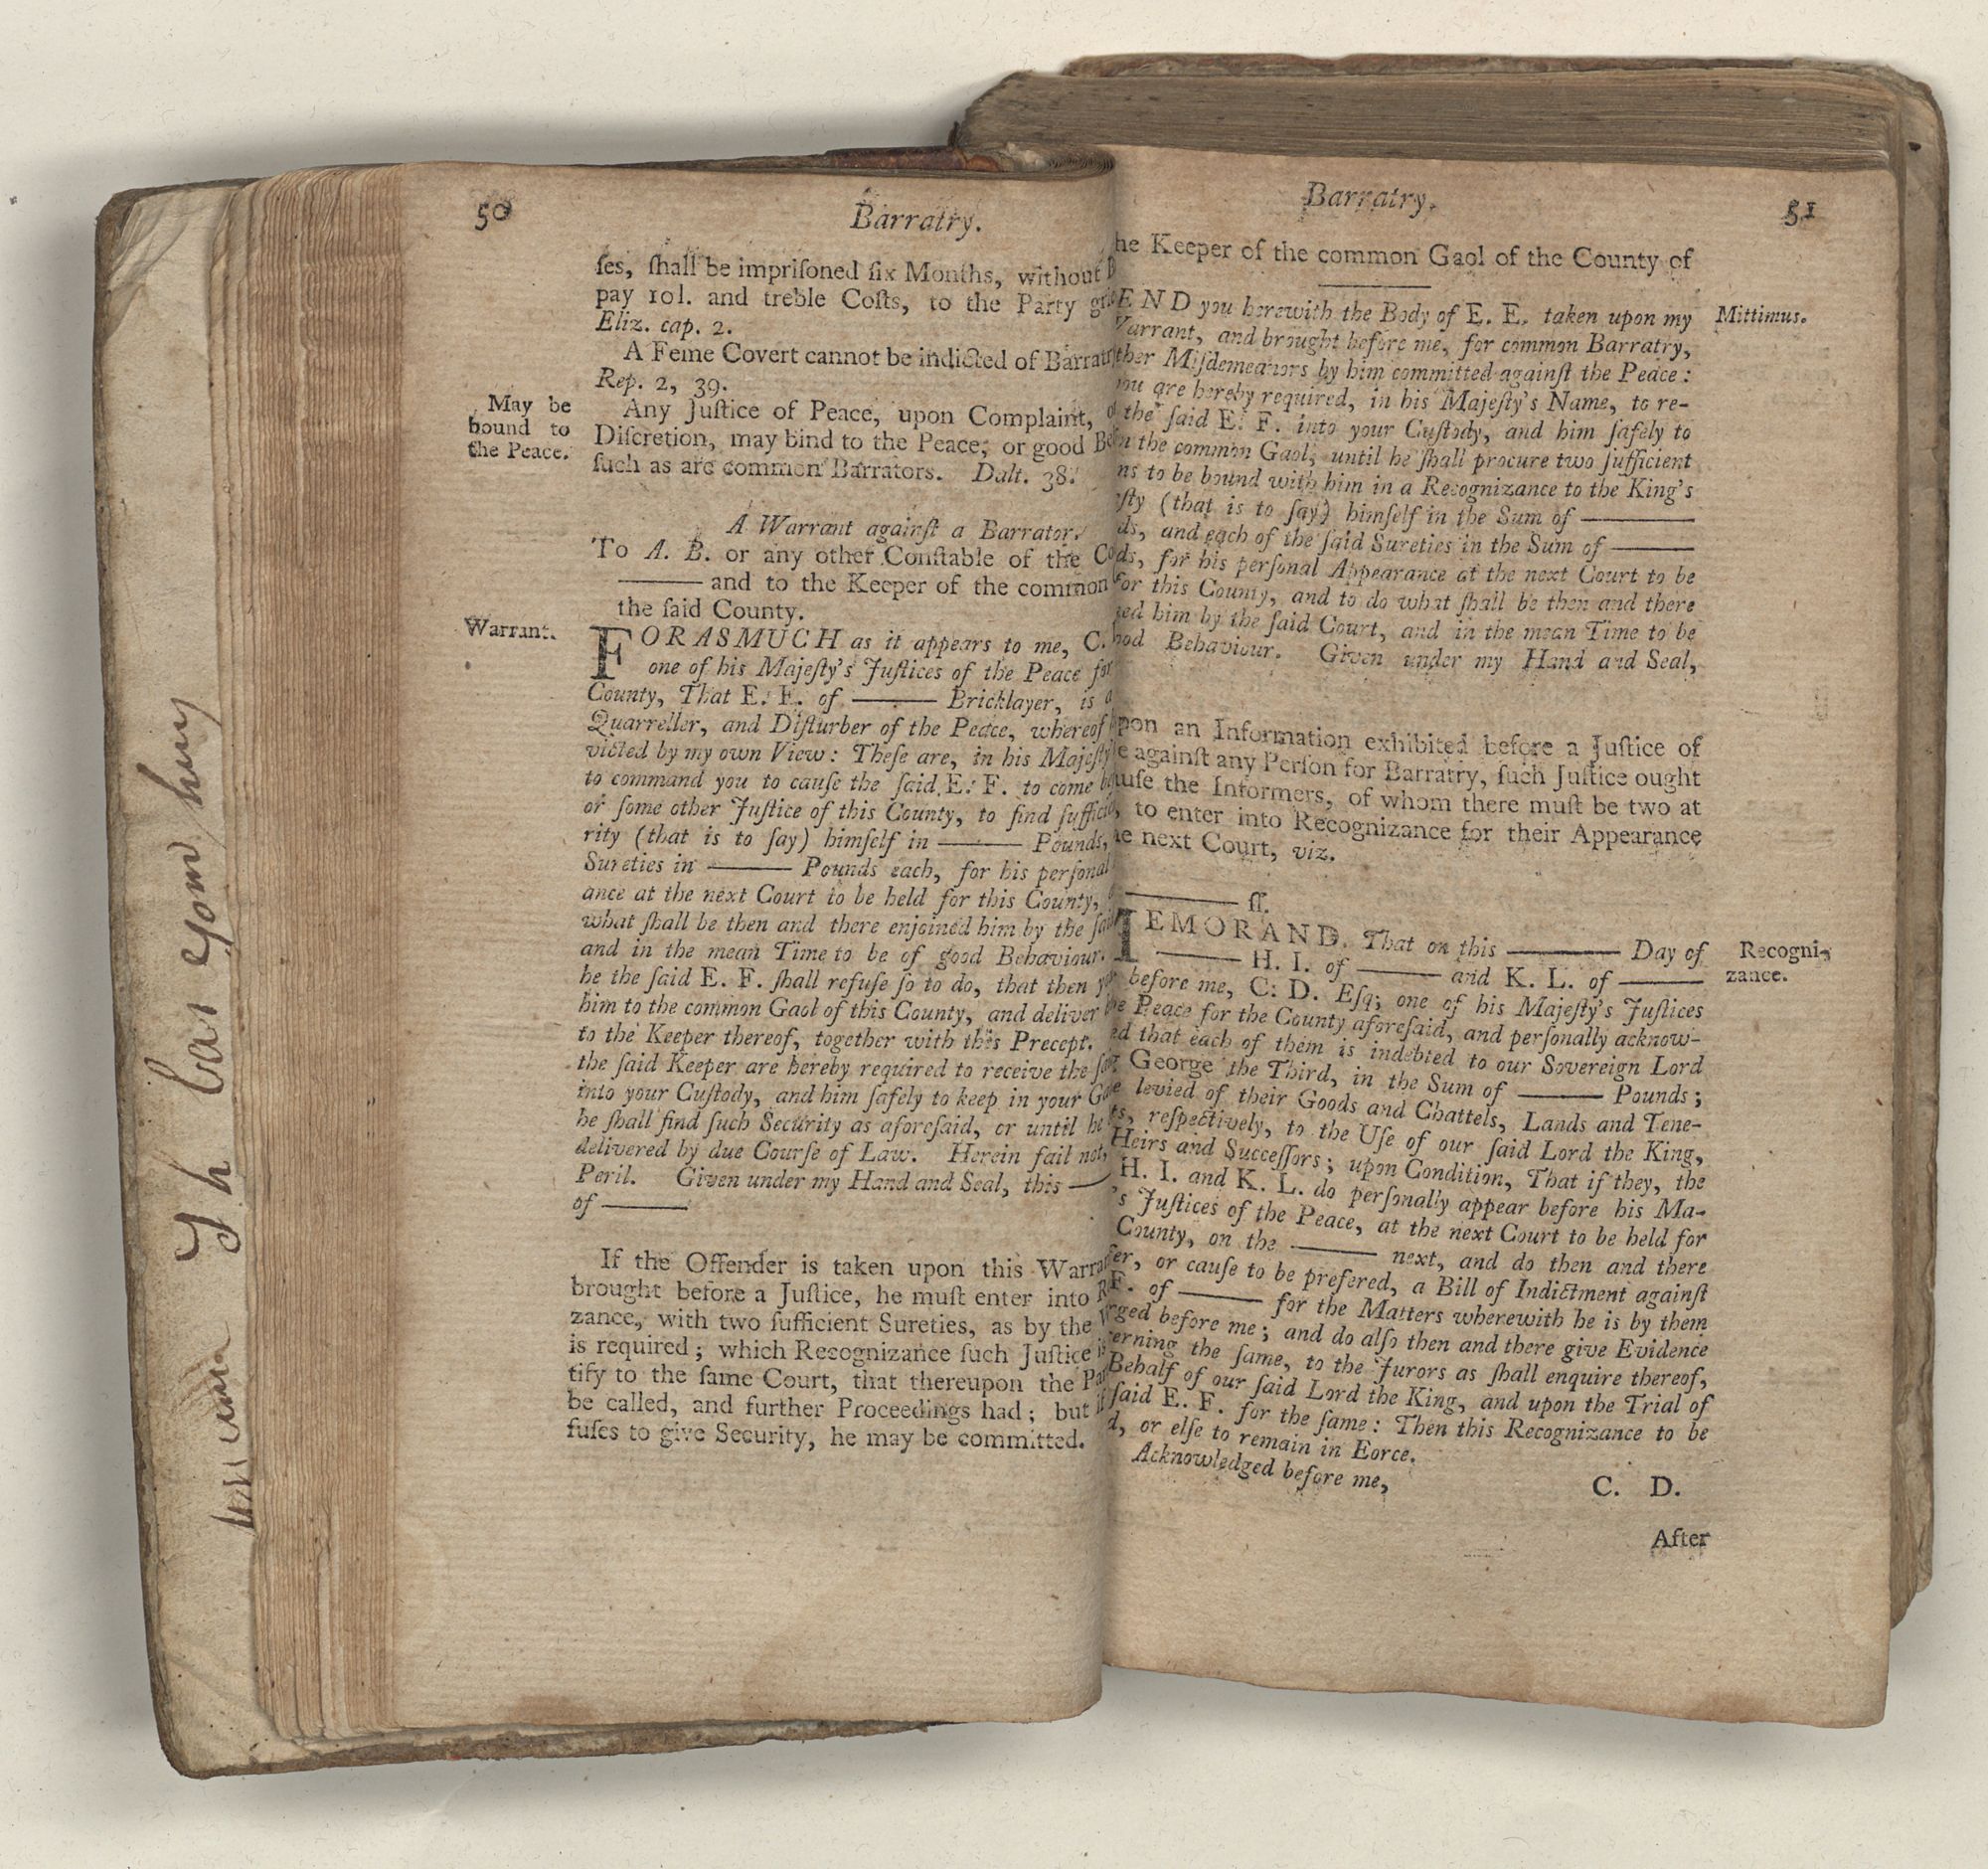 50 Barratry.
ſes, ſhall be impriſoned ſix Months, without
pay 10l. and treble Coſts, to the Party
Eliz. cap. 2.
A Feme Covert cannot be indicted of
Rep. 2, 39.
May be
bound to
the Peace.
Any Juſtice of Peace, upon Complaint,
Diſcretion, may bind to the Peace, or good
ſuch as are common Barrators. Dalt. 38.
A Warrant againſt a Barrator.
To A. B. or any other Conſtable of the
——— and to the Keeper of the common
the ſaid County.
Warrant.
FORASMUCH as it appears to me, C.
one of his Majeſty's Juſtices of the Peace for
County, That E. F. of ——— Bricklayer, is a
Quarreller, and Diſturber of the Peace, whereof
victed by my own View: Theſe are, in his
to command you to cauſe the ſaid E. F. to come
or ſome other Juſtice of this County, to find
rity (that is to ſay) himſelf in ——— Pounds,
Sureties in ——— Pounds each, for his perſonal
ance at the next Court to be held for this County,
what ſhall be then and there enjoined him by the
and in the mean Time to be of good Behaviour.
he the ſaid E. F. ſhall refuſe ſo to do, that then
him to the common Gaol of this County, and deliver
to the Keeper thereof, together with this Precept.
the ſaid Keeper are hereby required to receive the
into your Cuſtody, and him ſafely to keep in your
he ſhall find ſuch Security as aforeſaid, or until he
delivered by due Courſe of Law. Herein fail not,
Peril. Given under my Hand and Seal, this ———
of ———
If the Offender is taken upon this
brought before a Juſtice, he muſt enter into
zance, with two ſufficient Sureties, as by the
is required; which Recognizance ſuch Juſtice
tify to the ſame Court, that thereupon the
be called, and further Proceedings had; but
fuſes to give Security, he may be committed.
Barratry. 51
he Keeper of the common Gaol of the County of
———
END you herewith the Body of E. E. taken upon my
Mittimus.
Warrant, and brought before me, for common Barratry,
ther Miſdemeanors by him committed againſt the Peace:
ou are hereby required, in his Majeſty's Name, to re-
the ſaid E. F. into your Cuſtody, and him ſafely to
n the common Gaol, until he ſhall procure two ſufficient
ns to be bound with him in a Recognizance to the King's
ſty (that is to ſay) himſelf in the Sum of ———
ds, and each of the ſaid Sureties in the Sum of ———
ds, for his perſonal Appearance at the next Court to be
for this County, and to do what ſhall be then and there
ed him by the ſaid Court, and in the mean Time to be
ood Behaviour. Given under my Hand and Seal,
pon an Information exhibited before a Juſtice of
e againſt any Perſon for Barratry, ſuch Juſtice ought
uſe the Informers, of whom there muſt be two at
, to enter into Recognizance for their Appearance
e next Court, viz.
——— ſſ.
EMORAND. That on this ——— Day of
Recogni-
zance.
——— H. I. of ——— and K. L. of ———
before me, C. D. Eſq; one of his Majeſty's Juſtices
e Peace for the County aforeſaid, and perſonally acknow-
ed that each of them is indebted to our Sovereign Lord
George the Third, in the Sum of ——— Pounds;
e levied of their Goods and Chattels, Lands and Tene-
ts, reſpectively, to the Uſe of our ſaid Lord the King,
Heirs and Succeſſors; upon Condition, That if they, the
H. I. and K. L. do perſonally appear before his Ma-
's Juſtices of the Peace, at the next Court to be held for
County, on the ——— next, and do then and there
er, or cauſe to be prefered, a Bill of Indictment againſt
F. of ——— for the Matters wherewith he is by them
rged before me; and do alſo then and there give Evidence
erning the ſame, to the Jurors as ſhall enquire thereof,
Behalf of our ſaid Lord the King, and upon the Trial of
ſaid E. F. for the ſame: Then this Recognizance to be
d, or elſe to remain in Eorce.
Acknowledged before me,
C. D.
After